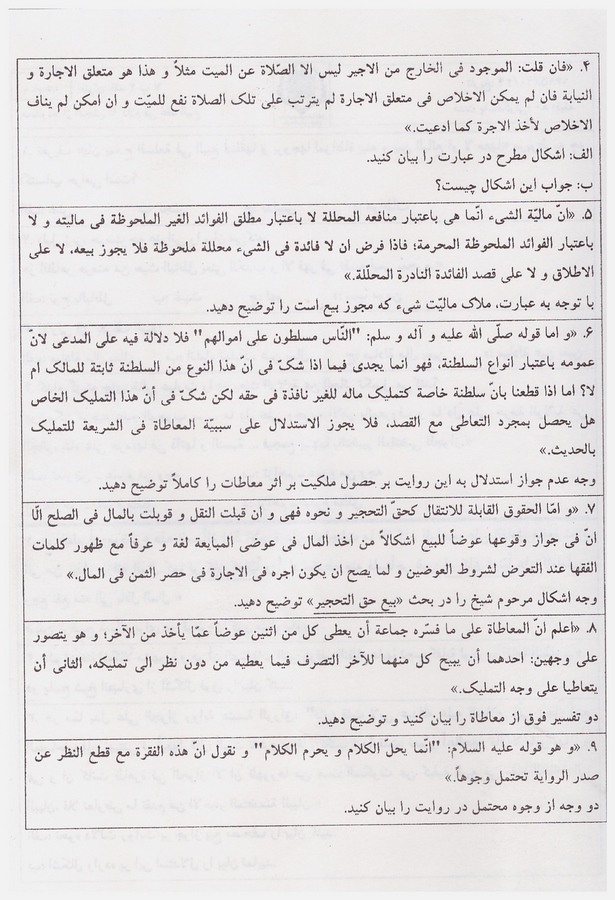 ۴. «فان قلت: الموجود فی الخارج من الاجیر لیس الا الصّلاة عن المیت مثلاً و هذا هو متعلق الاجارة و
النیابة فان لم یمکن الاخلاص فی متعلق الاجارة لم یترتب علی تلک الصلاة نفع للمیّت و ان امکن لم یناف
الاخلاص لأخذ الاجرة کما ادعیت.»
الف: اشکال مطرح در عبارت را بیان کنید.
ب: جواب این اشکال چیست؟
۵. «انّ مالیّة الشیء انّما هی باعتبار منافعه المحللة لا باعتبار مطلق الفوائد الغیر الملحوظة فی مالیته و لا
باعتبار الفوائد الملحوظة المحرمة؛ فاذا فرض ان لا فائدة فی الشیء محللة ملحوظة فلا یجوز بیعه، لا علی
الاطلاق و لا علی قصد الفائدة النادرة المحلّلة.»
با توجه به عبارت، ملاک مالیّت شیء که مجوز بیع است را توضیح دهید.
۶. «و اما قوله صلّی الله علیه و آله و سلم: "النّاس مسلطون علی اموالهم" فلا دلالة فیه علی المدعی لانّ
عمومه باعتبار انواع السلطنة، فهو انما یجدی فیما اذا شکّ فی انّ هذا النوع من السلطنة ثابتة للمالک ام
لا؟ اما اذا قطعنا بانّ سلطنة خاصة کتملیک ماله للغیر نافذة فی حقه لکن شکّ فی انّ هذا التملیک الخاص
هل یحصل بمجرد التعاطی مع القصد، فلا یجوز الاستدلال علی سببیّة المعاطاة فی الشریعة للتملیک
بالحدیث.»
وجه عدم جواز استدلال به این روایت بر حصول ملکیت بر اثر معاطات را کاملاً توضیح دهید.
۷. «و امّا الحقوق القابلة للانتقال کحقّ التحجیر و نحوه فهی و ان قبلت النقل و قوبلت بالمال فی الصلح الّا
انّ فی جواز وقوعها عوضاً للبیع اشکالاً من اخذ المال فی عوضی المبایعة لغة و عرفاً مع ظهور کلمات
الفقها عند التعرض لشروط العوضین و لما یصح ان یکون اجره فی الاجارة فی حصر الثمن فی المال.»
وجه اشکال مرحوم شیخ را در بحث «بیع حق التحجیر» توضیح دهید.
۸. «أعلم انّ المعاطاة علی ما فسّره جماعة أن یعطی کل من اثنین عوضاً عمّا یأخذ من الآخر؛ و هو یتصور
علی وجهین: احدهما أن یبیح کل منهما للآخر التصرف فیما یعطیه من دون نظر الی تملیکه، الثانی أن
یتعاطیا علی وجه التملیک.»
دو تفسیر فوق از معاطاة را بیان کنید و توضیح دهید.
۹. «و هو قوله علیه السلام: "انّما یحلّ الکلام و یحرم الکلام" و نقول انّ هذه الفقرة مع قطع النظر عن
صدر الروایة تحتمل وجوهاً.»
دو وجه از وجوه محتمل در روایت را بیان کنید.